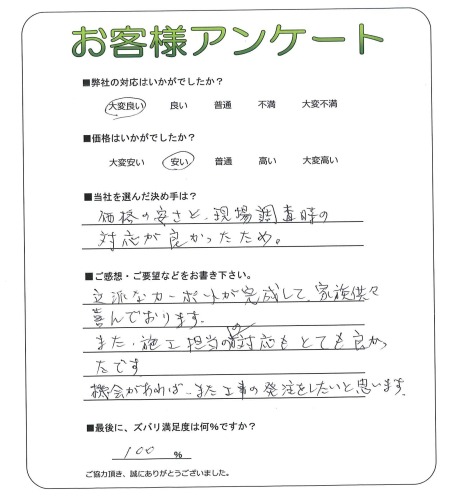 お客様アンケート
■弊社の対応はいかがでしたか？
大変良い 良い 普通 不満 大変不満
■価格はいかがでしたか？
大変安い 安い 普通 高い 大変高い
■当社を選んだ決め手は？
価格の安さと、現場調査時の
対応が良かったため。
■ご感想・ご要望などをお書き下さい。
立派なカーポートが完成して、家族供々
喜んでおります。
また、施工担当の対応もとても良かっ
たです
機会があれば、また工事の発注をしたいと思います。
■最後に、ズバリ満足度は何%ですか？
100 %
ご協力頂き、誠にありがとうございました。